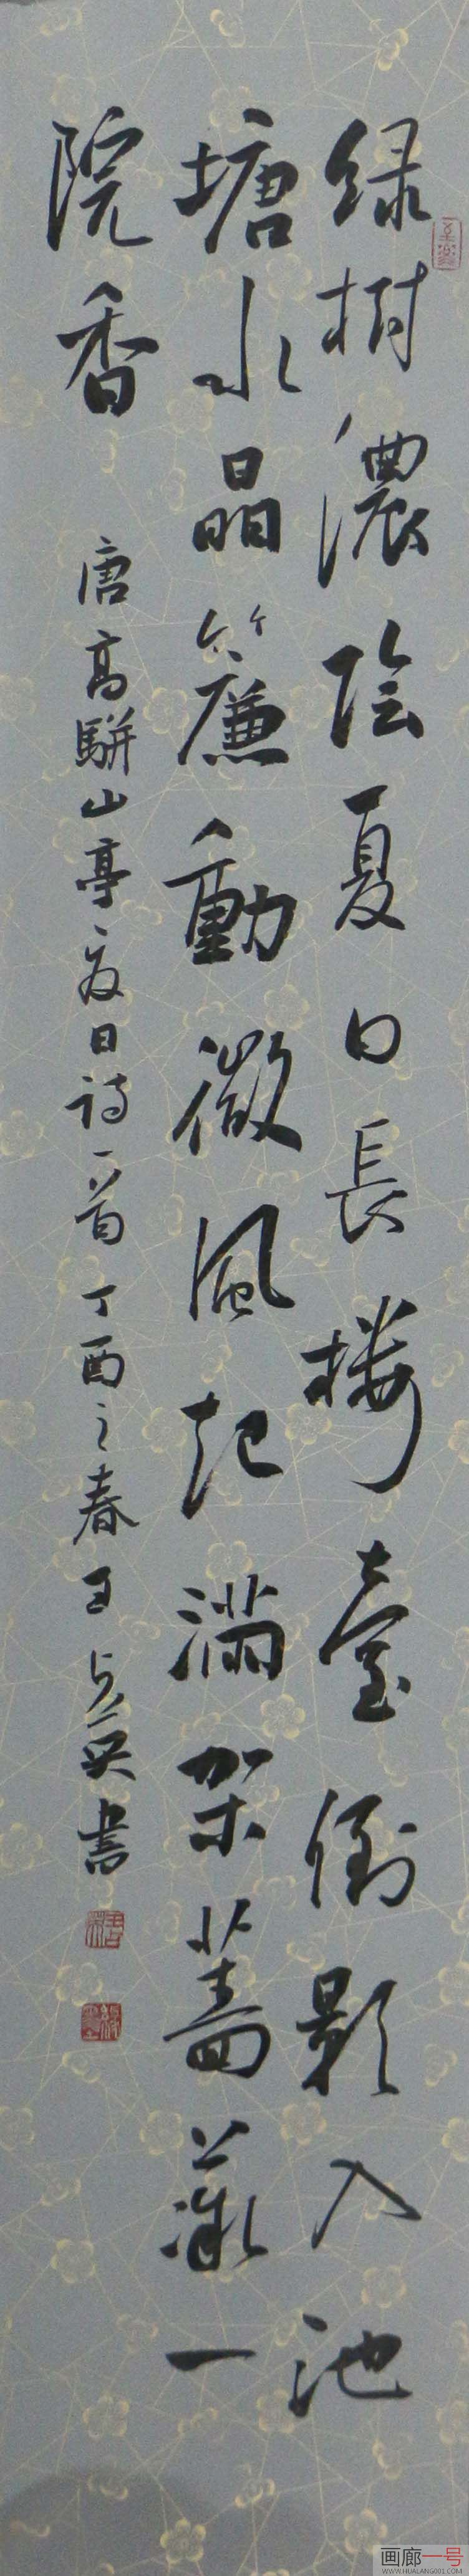 绿樹濃陰夏日長樓臺倒影入池
塘水晶簾動微風起滿架薔薇一
院香
唐高駢山亭夏日詩一首丁酉之春王占英書
画廊一号
WWW.HUALANG001.COM